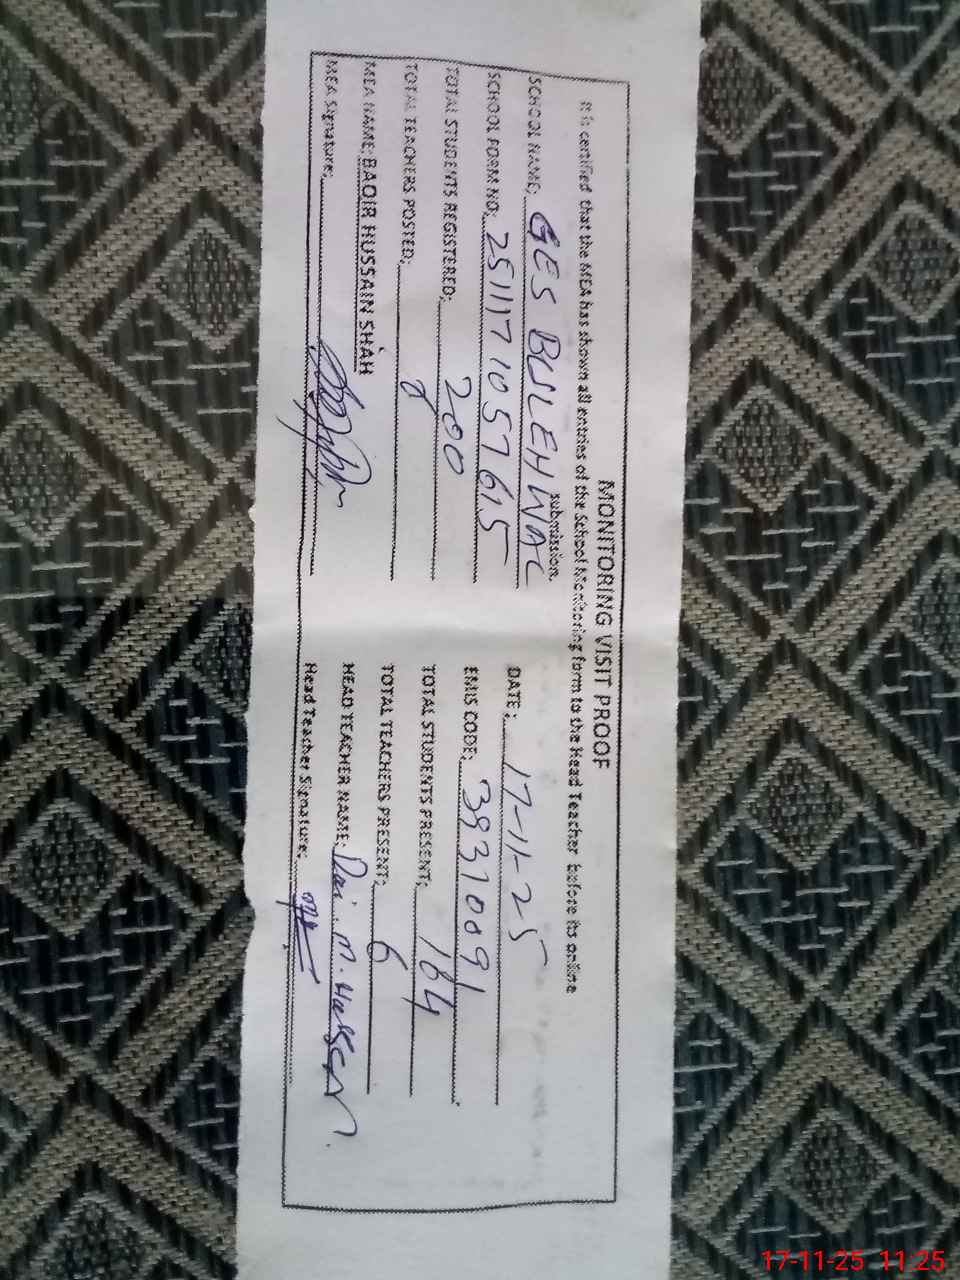 MONITORING VISIT PROOF
It is certified that the MEA has shown all entries of the School Monitoring form to the Head Teacher before its online
submission.
SCHOOL NAME: GES BUSLEHWAL DATE: 17-11-25
SCHOOL FORM NO: 2511171057615 EMIS CODE: 38310091
TOTAL STUDENTS REGISTERED: 200 TOTAL STUDENTS PRESENT: 164
TOTAL TEACHERS POSTED: 8 TOTAL TEACHERS PRESENT: 6
MEA NAME: BAQIR HUSSAIN SHAH HEAD TEACHER NAME: M. Hassan
MEA Signature: Head Teacher Signature:
17-11-25 11:25